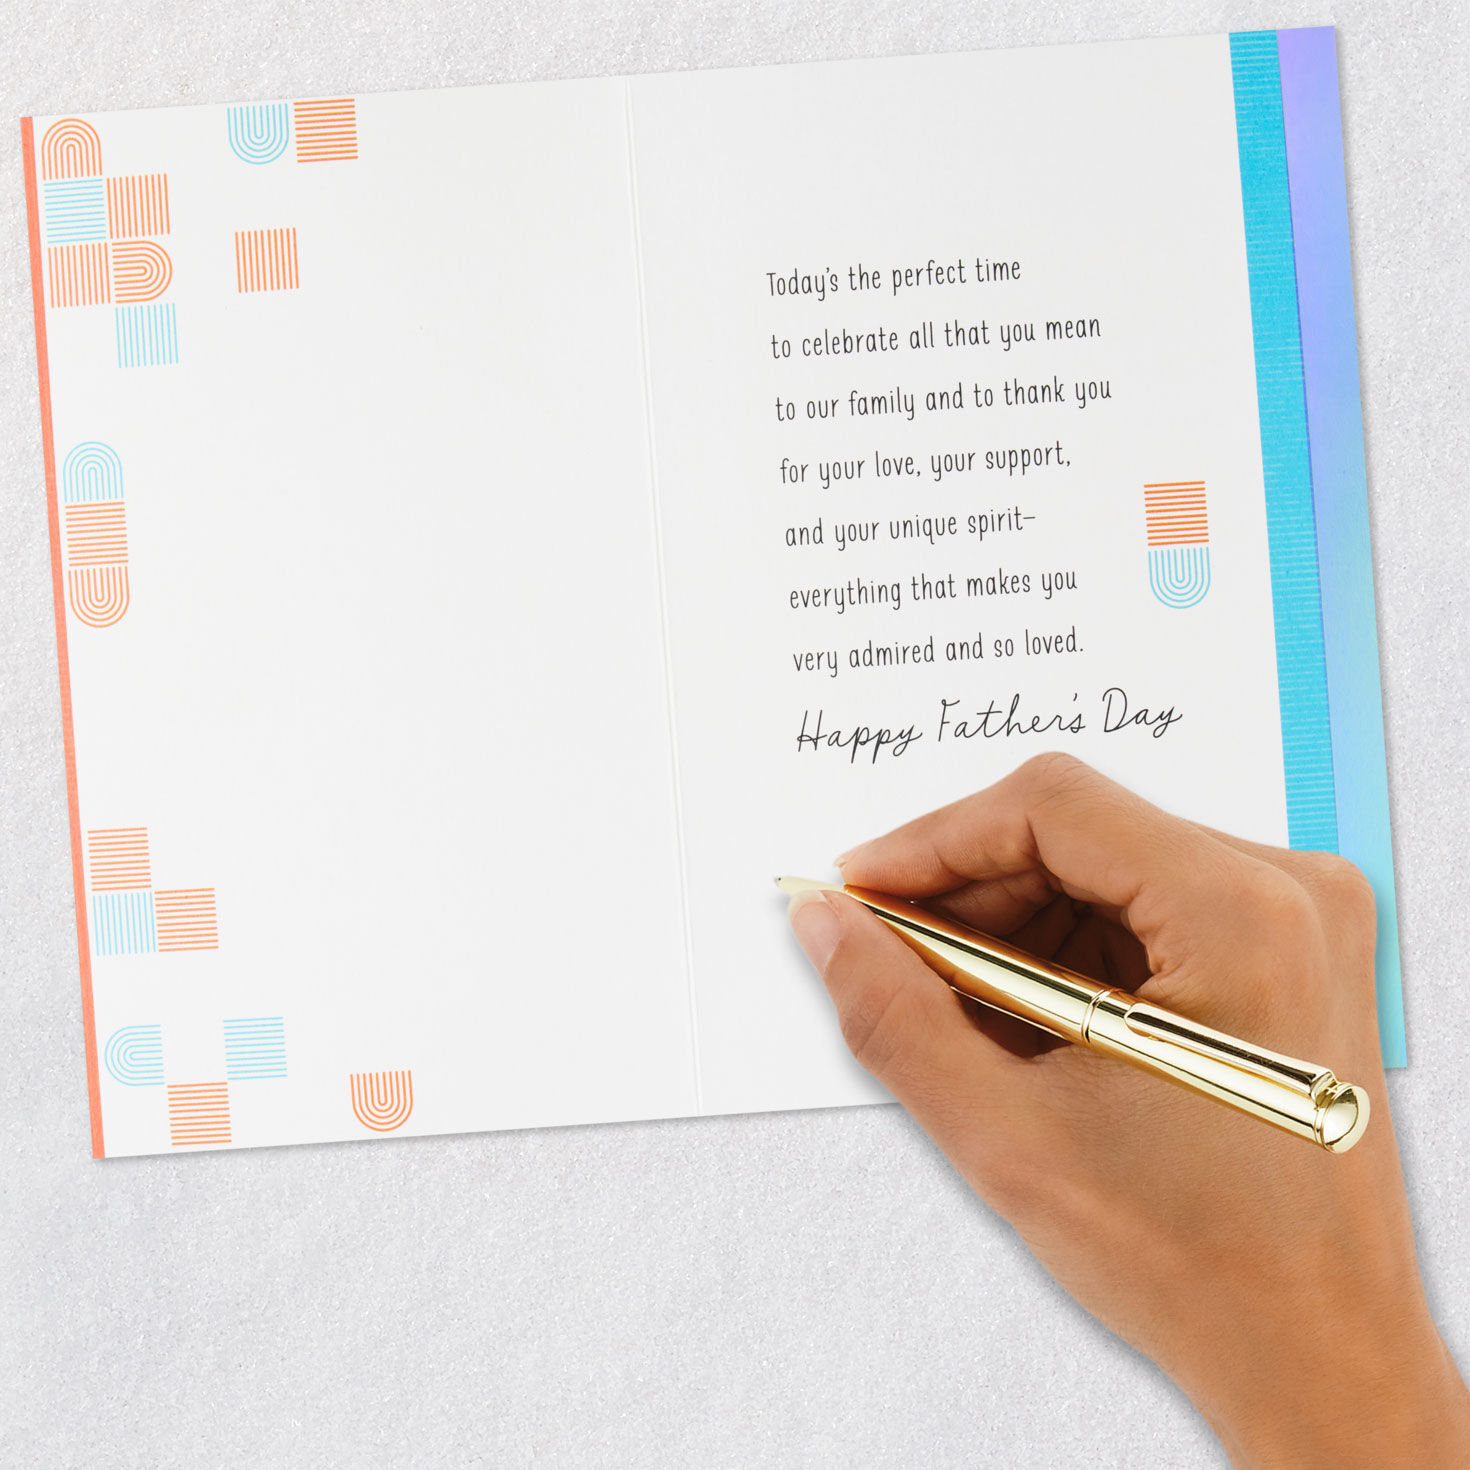 Today's the perfect time
to celebrate all that you mean
to our family and to thank you
for your love, your support,
and your unique spirit—
everything that makes you
very admired and so loved.
Happy Father's Day